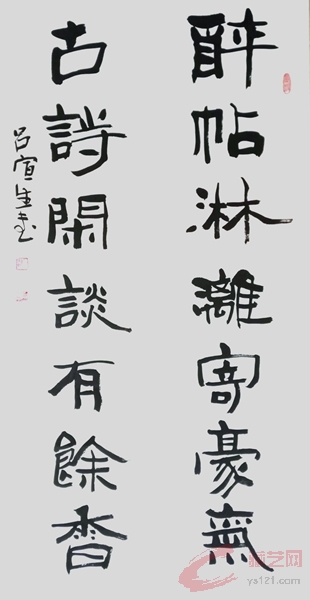 醉帖淋漓寄豪氣
古詩閑談有餘香
吕宣生書
藏艺网
ys121.com